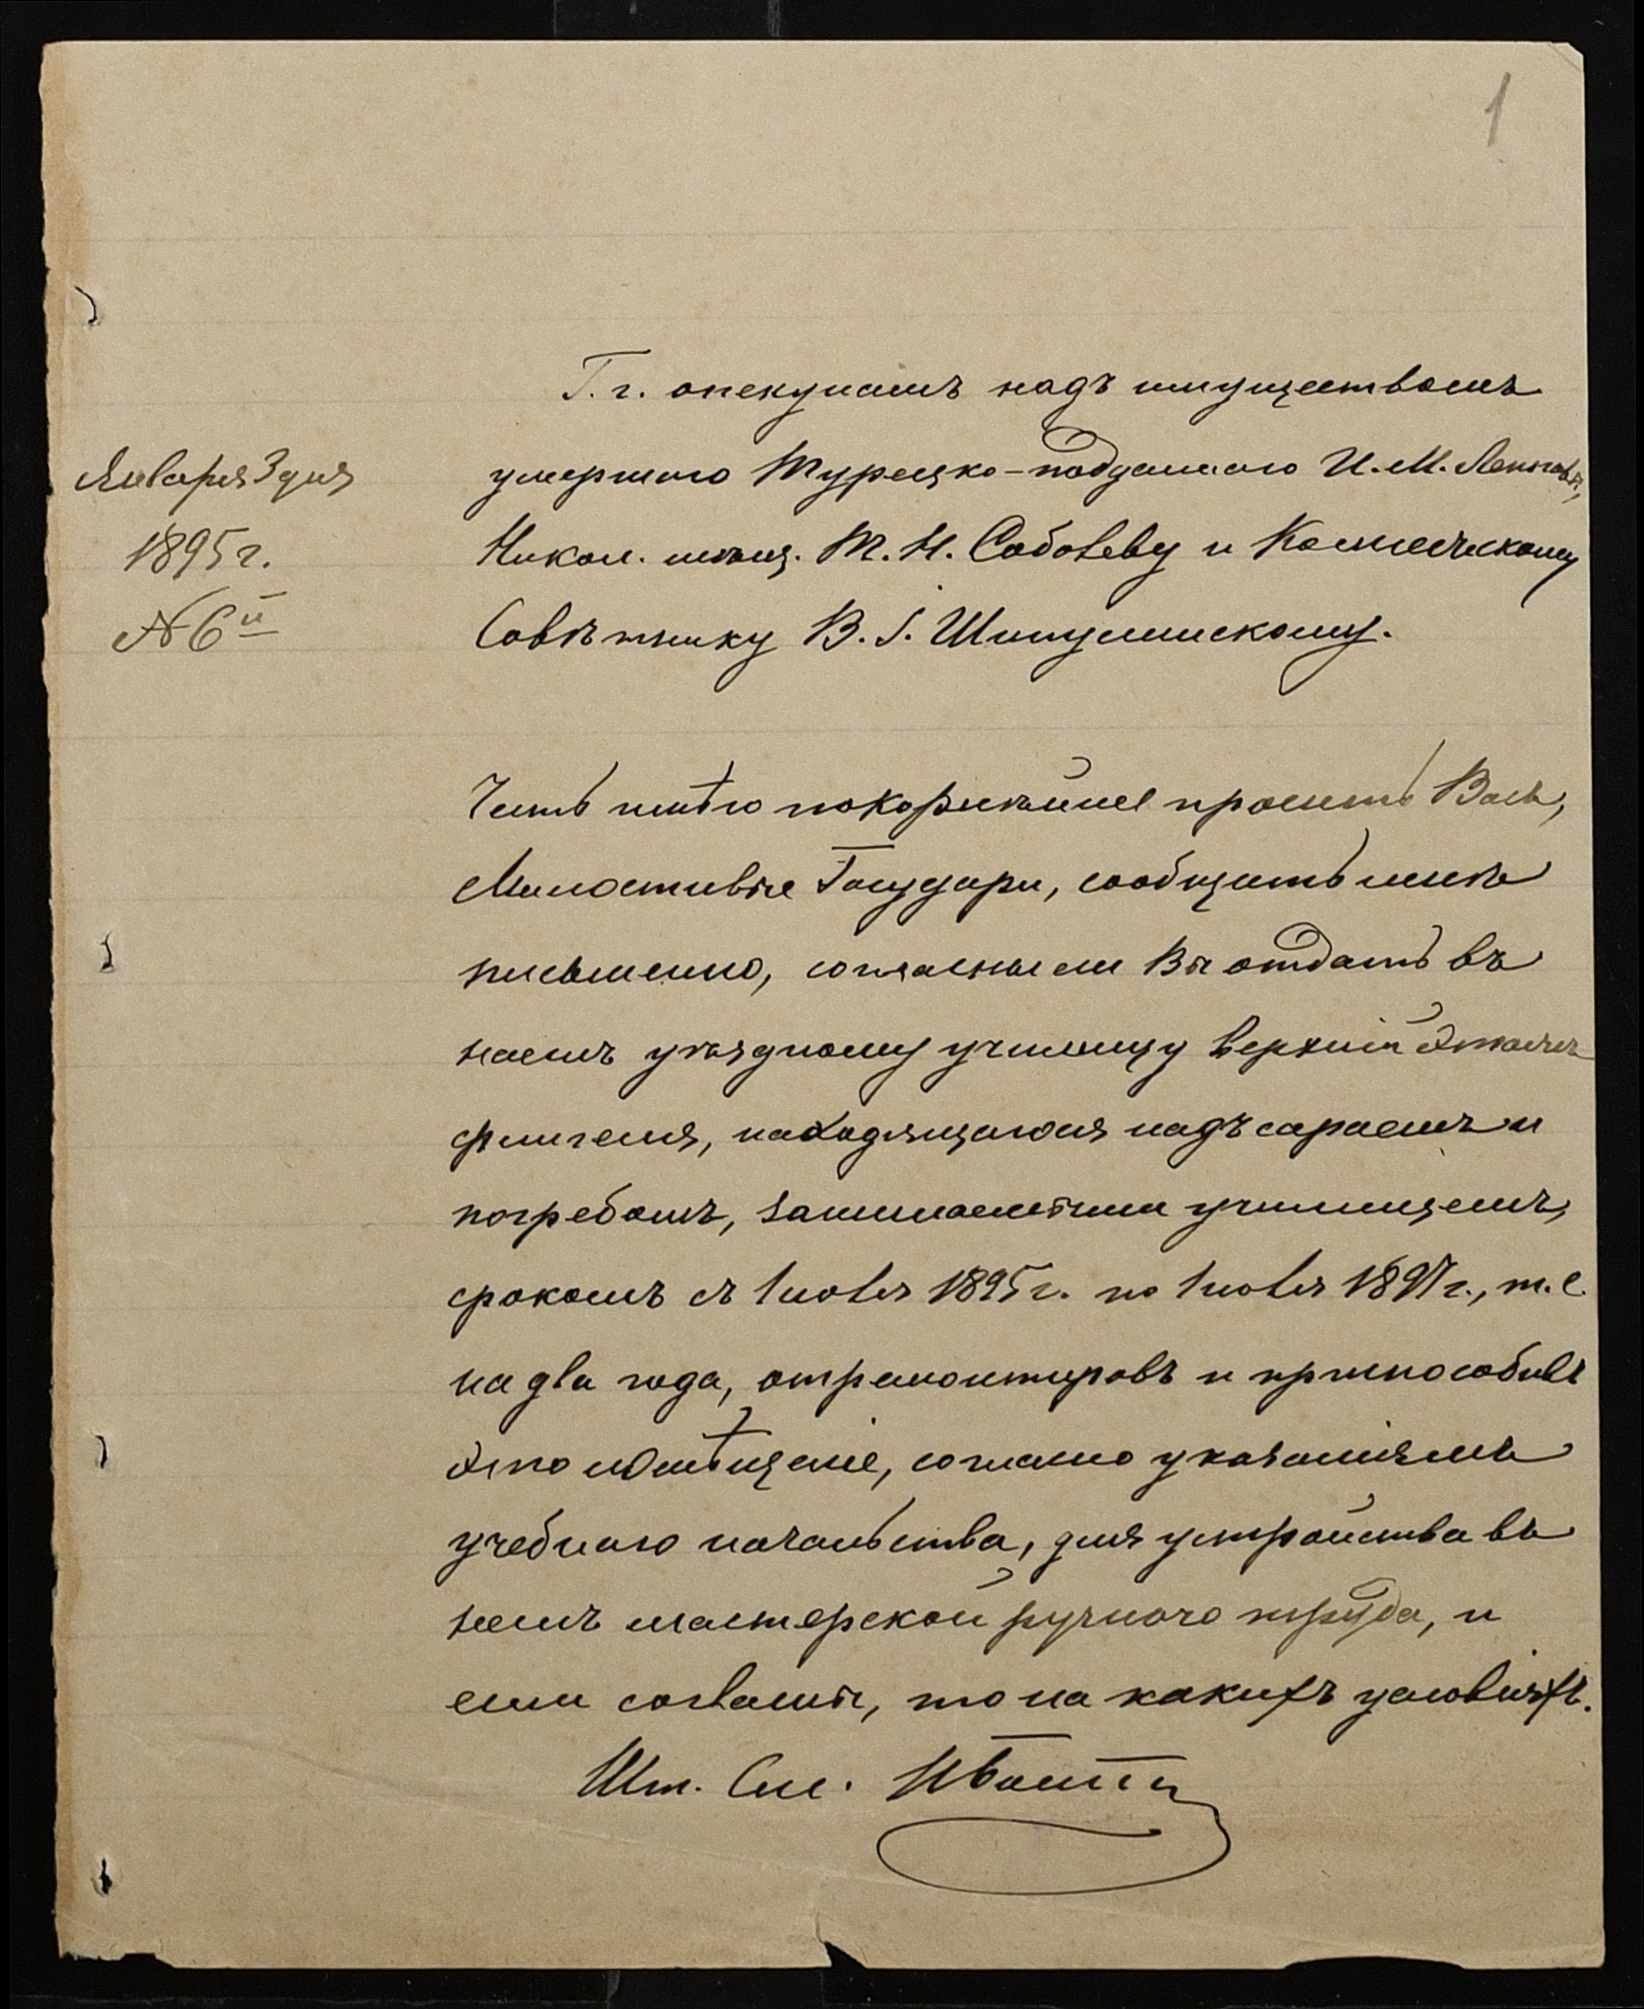 1
Г.г. опекунамъ надъ имуществомъ
Января 3 дня
умершаго Турецко-подданнаго И. М.
1895 г.
Никол. мѣщ. Т. Н. Соболеву и Коммерческому
№ 6й
Совѣтнику В. І.
Честь имѣю покорнѣйше просить Васъ,
Милостивые Государи, сообщить мнѣ
письменно, согласны ли Вы отдать въ
наемъ уѣздному училищу верхній этажъ
флигеля, находящагося надъ сараемъ и
погребомъ, занимаемыми училищемъ,
срокомъ съ 1 іюля 1895 г. по 1 іюля 1897 г., т. е.
на два года, отремонтировъ и приспособивъ
это помѣщеніе, согласно указаніямъ
учебнаго начальства, для устройства въ
немъ мастерской ручного труда, и
если согласны, то на какихъ условіяхъ.
Шт. См.